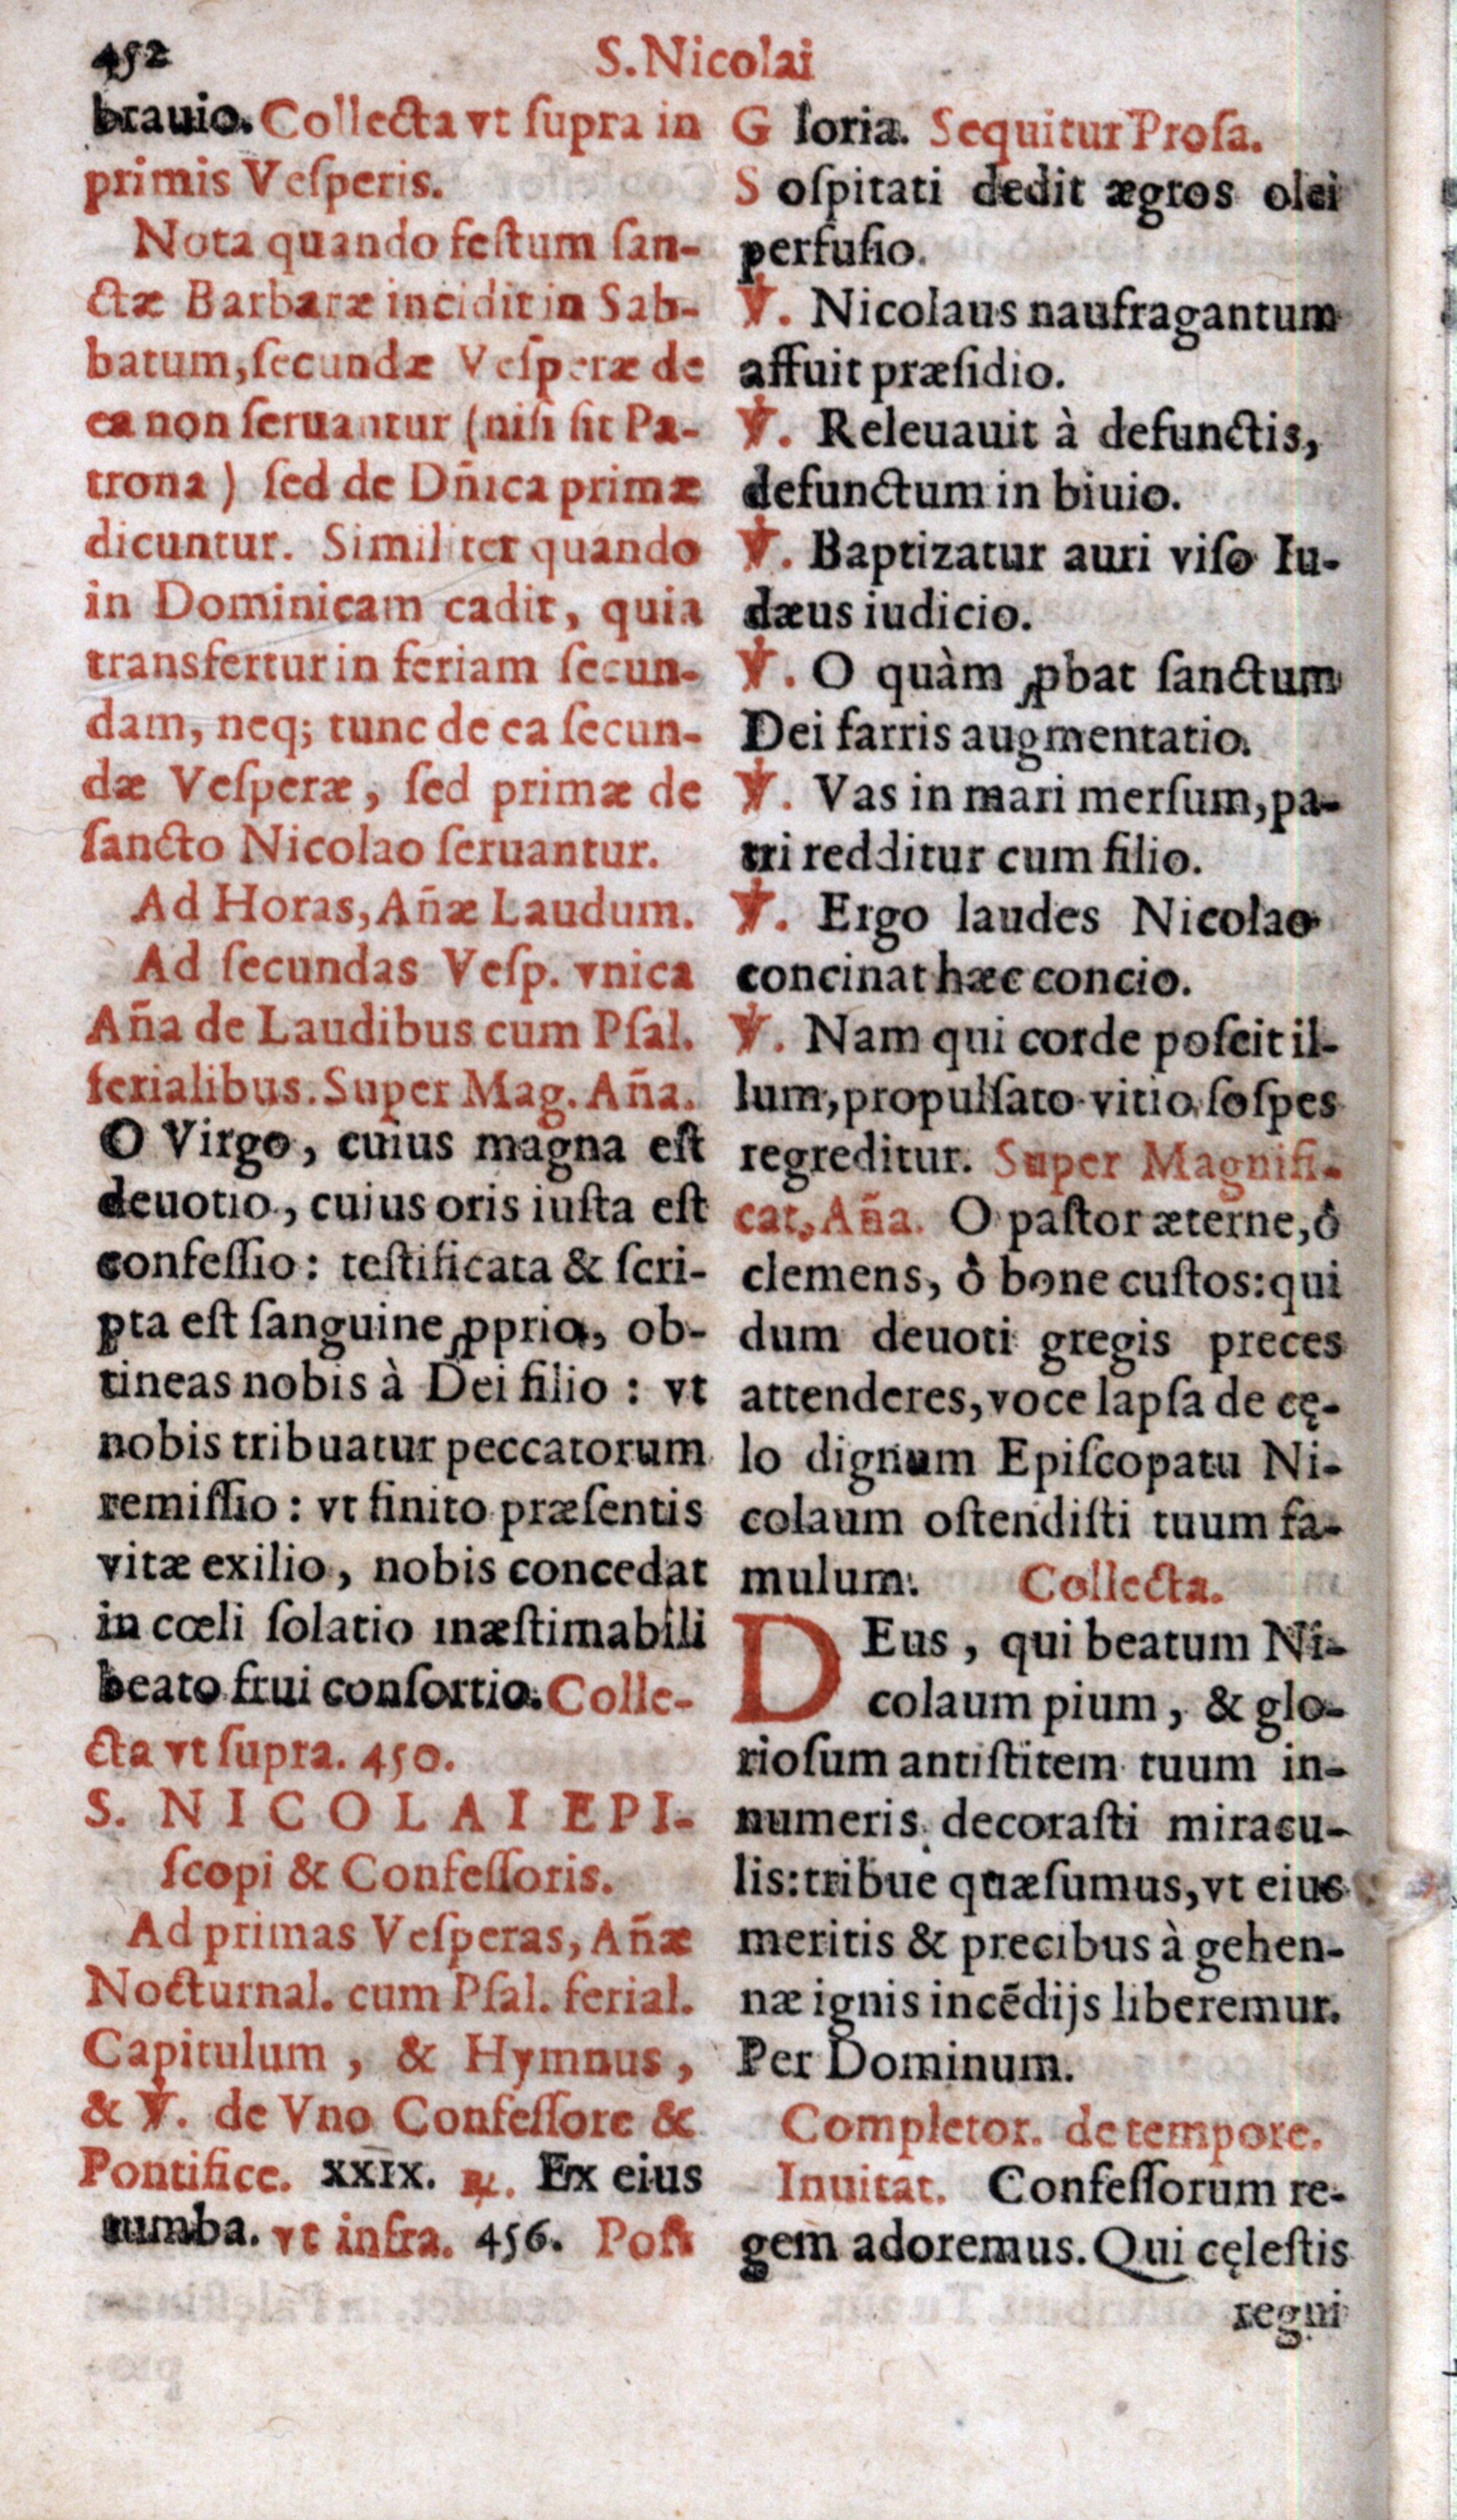 452
S. Nicolai
brauio. Collecta vt ſupra in
primis Veſperis.
Nota quando feſtum ſan-
ctæ Barbaræ incidit in Sab-
batum, ſecundæ Veſperæ de
ea non ſeruantur (niſi ſit Pa-
trona) ſed de Dñica primæ
dicuntur. Similiter quando
in Dominicam cadit, quia
transfertur in feriam ſecun-
dam, neq; tunc de ea ſecun-
dæ Veſperæ, ſed primæ de
ſancto Nicolao ſeruantur.
Ad Horas, Añæ Laudum.
Ad ſecundas Veſp. vnica
Aña de Laudibus cum Pſal.
ferialibus. Super Mag. Aña.
O Virgo, cuius magna eſt
deuotio, cuius oris iuſta eſt
confeſſio: teſtificata & ſcri-
pta eſt ſanguine ꝓprio, ob-
tineas nobis à Dei filio: vt
nobis tribuatur peccatorum
remiſſio: vt finito præſentis
vitæ exilio, nobis concedat
in cœli ſolatio inæſtimabili
beato frui conſortio. Colle-
cta vt ſupra. 450.
S. NICOLAI EPI-
ſcopi & Confeſſoris.
Ad primas Veſperas, Añæ
Nocturnal. cum Pſal. ferial.
Capitulum, & Hymnus,
& ℣. de Vno Confeſſore &
Pontifice. xxix. ℟. Ex eius
tumba. vt infra. 456. Poſt
G loria. Sequitur Proſa.
S oſpitati dedit ægros olei
perfuſio.
℣. Nicolaus naufragantum
affuit præſidio.
℣. Releuauit à defunctis,
defunctum in biuio.
℣. Baptizatur auri viſo Iu-
dæus iudicio.
℣. O quàm ꝓbat ſanctum
Dei farris augmentatio.
℣. Vas in mari merſum, pa-
tri redditur cum filio.
℣. Ergo laudes Nicolao
concinat hæc concio.
℣. Nam qui corde poſcit il-
lum, propulſato vitio ſoſpes
regreditur. Super Magnifi-
cat, Aña. O paſtor æterne, ô
clemens, ô bone cuſtos: qui
dum deuoti gregis preces
attenderes, voce lapſa de cę-
lo dignum Epiſcopatu Ni-
colaum oſtendiſti tuum fa-
mulum. Collecta.
DEus, qui beatum Ni-
colaum pium, & glo-
rioſum antiſtitem tuum in-
numeris decoraſti miracu-
lis: tribue quæſumus, vt eius
meritis & precibus à gehen-
næ ignis incēdijs liberemur.
Per Dominum.
Completor. de tempore.
Inuitat. Confeſſorum re-
gem adoremus. Qui cęleſtis
regni